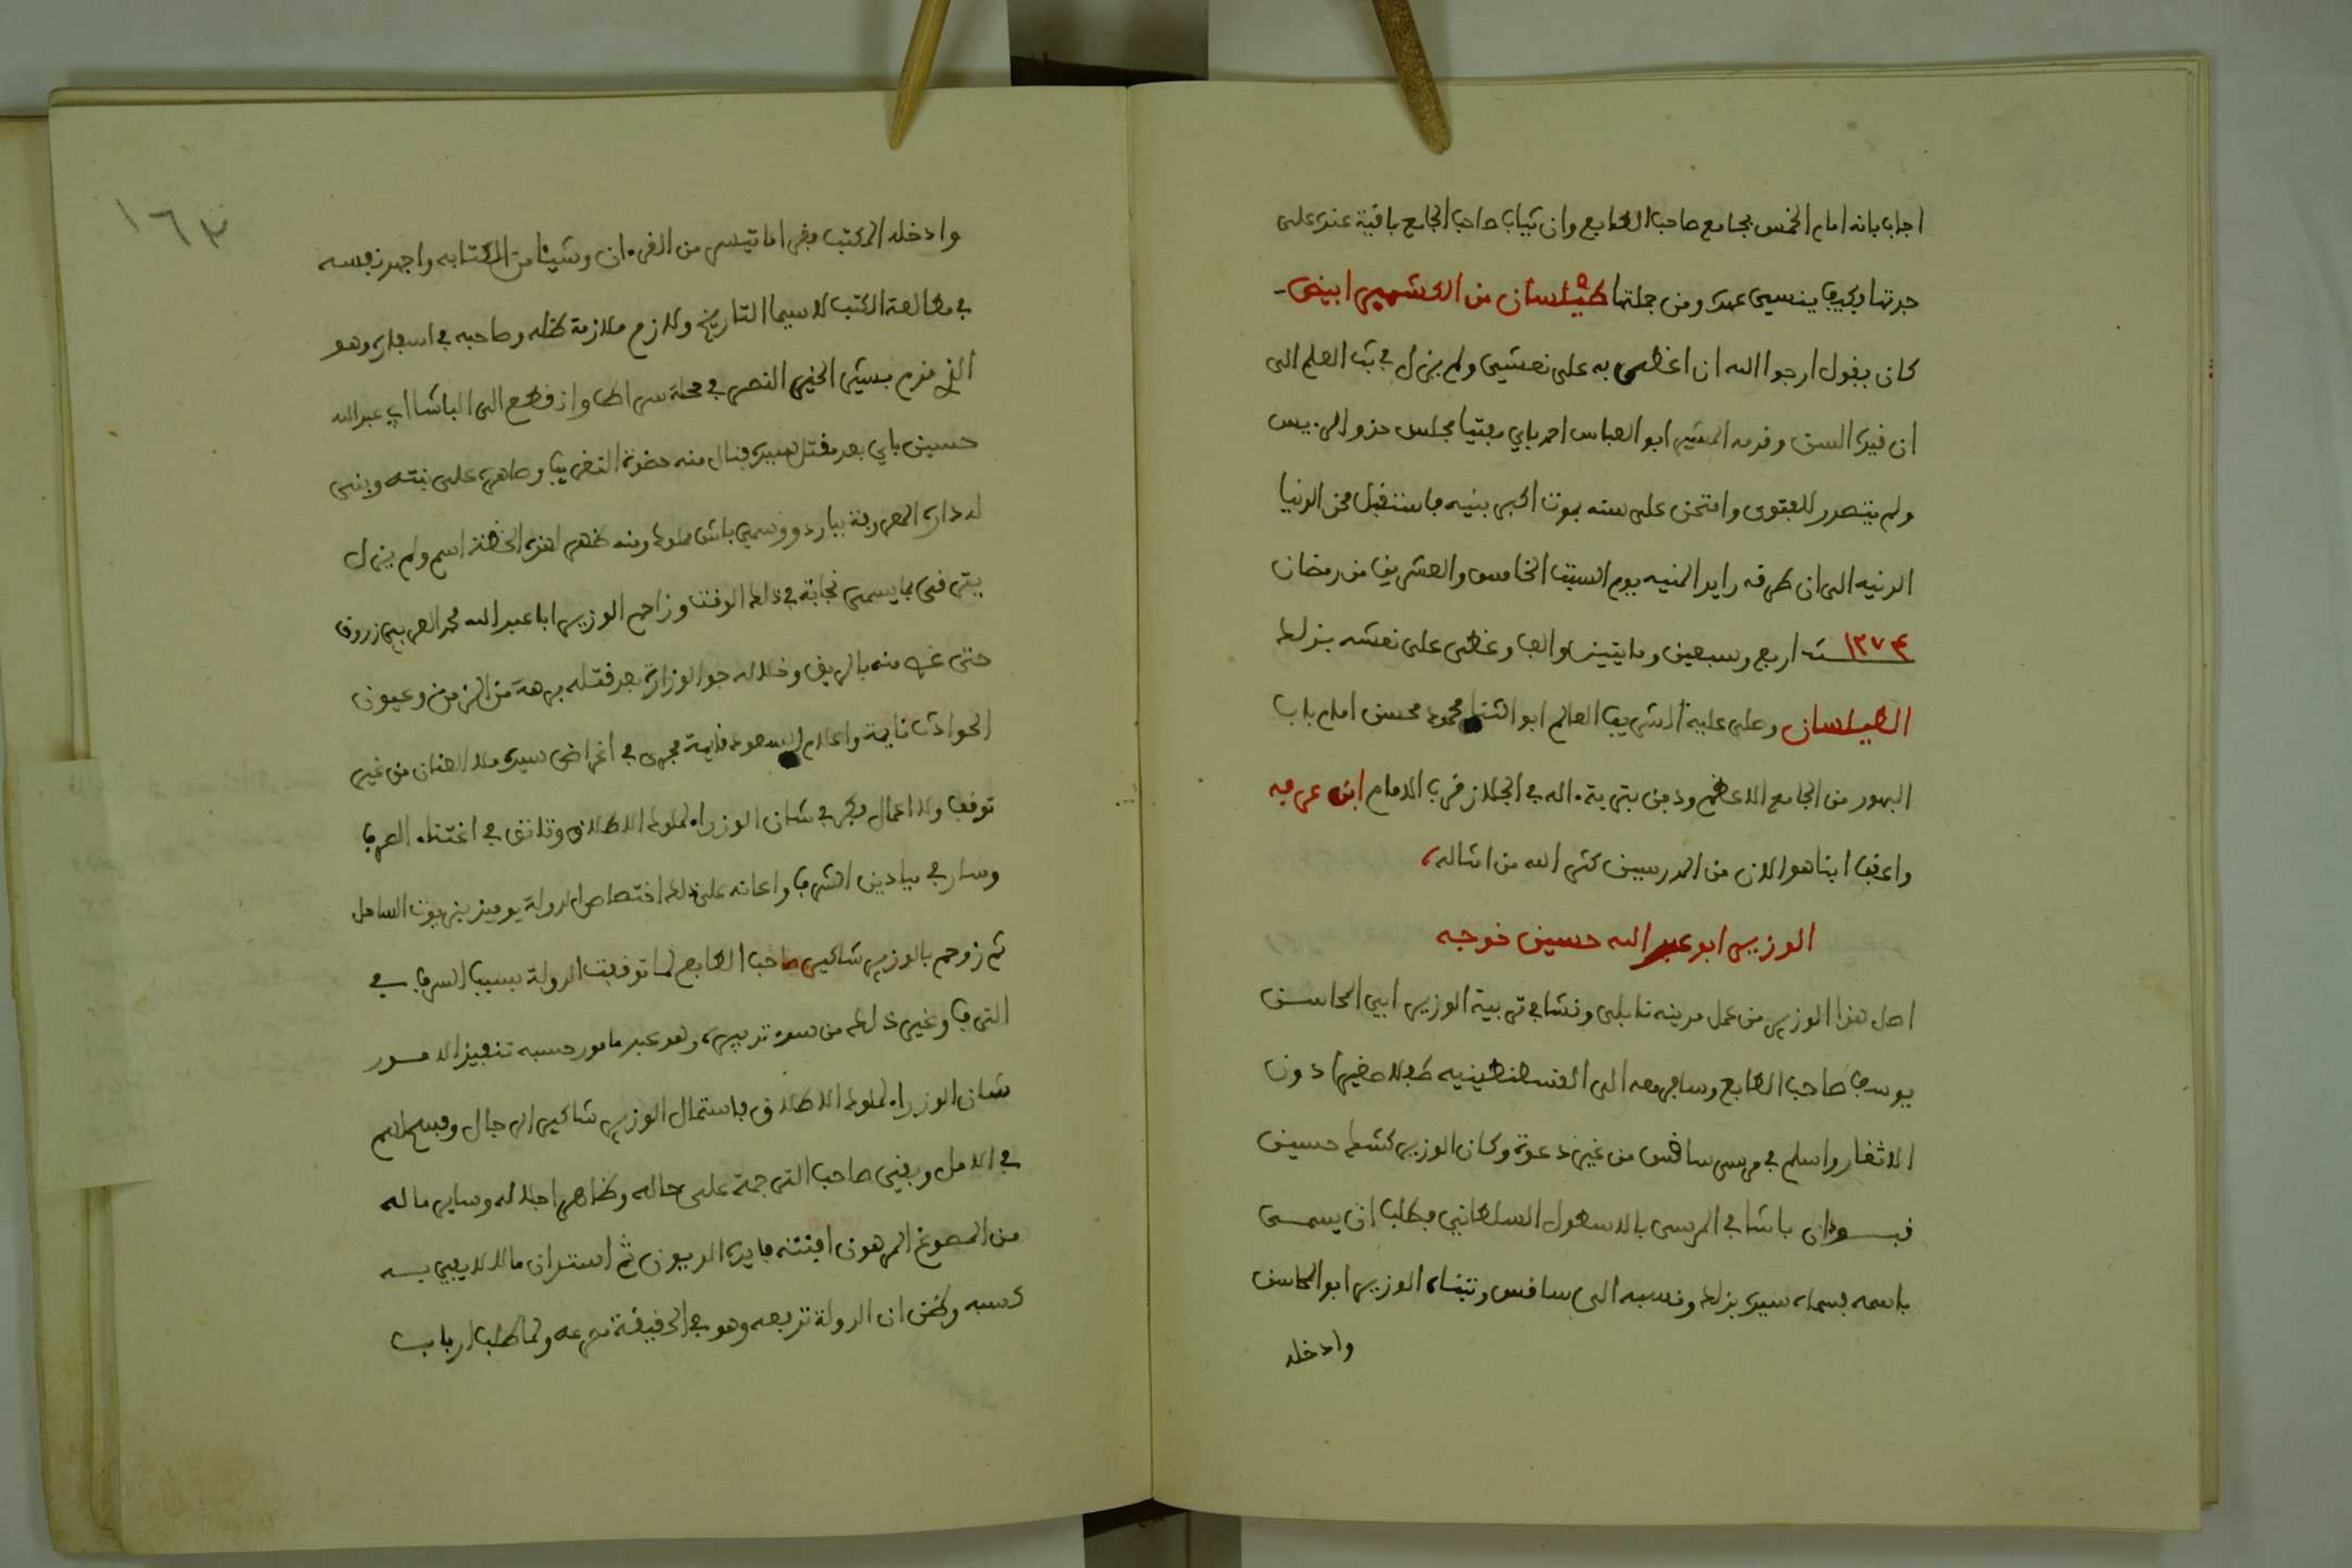 اجاب بانه امام الخمس بجامع صاحب الطابع وان ثياب صاحب الجامع باقية عنده على
جدتها وكيف ينسى عهده ومن جملتها طيلسان من الكشمير ابيض
كان يقول ارجوا الله ان اغطى به على نعشي ولم يزل في بث العلم الى
ان قيده السن وقدمه المشير ابو العباس احمد باي مفتيا بمجلس حذو الرييس
ولم يتصدر للفتوى وامتحن على سنه بموت اكبر بنيه فاستقبل محن الدنيا
الدنيه الى ان طرقه رايد المنيه يوم السبت الخامس والعشرين من رمضان
سنة ١٢٧٤ اربع وسبعين ومايتين والف وغطى على نعشه بذلك
الطيلسان وصلى عليه الشريف العالم ابو الثنا محمود محسن امام باب
البهور من الجامع الاعظم ودفن بتربة اله في الجلاز قرب الامام ابن عرفه
واعقب ابنا هو الان من المدرسين كثر الله من امثاله
الوزير ابو عبد الله حسين خوجه
اصل هذا الوزير من عمل مدينه نابلي ونشا في تربية الوزير ابي المحاسن
يوسف صاحب الطابع وسافر معه الى القسطنطينيه طفلا صغيرا دون
الاثغار واسلم في مرسى ساقس من غير دعوة وكان الوزير كشك حسين
قبودان باشا في المرسى بالاسطول السلطاني فطلب ان يسمى
باسمه فسماه سيده بذلك ونسبه الى ساقس وتبناه الوزير ابو المحاسن
وادخله
١٦٣
وادخله المكتب فقرا ما تيسر من القرءان وشيئا من الكتابه واجهد نفسه
في مطالعة الكتب لاسيما التاريخ ولازم ملازمة ظله وصاحبه في اسفاره وهو
الذي قدم بشير الخير النصر في محلة سراط واذ قطع الى الباشا ابي عبد الله
حسين باي بعد مقتل سيده فنال منه حضوة التقريب وصاهره على بنته وبنى
له داره المعروفة بباردو وسمي باش مملوك ومنه ظهر لهذه الخطة اسم ولم يزل
يترقى بما يسمى نجابة في ذلك الوقت وزاحم الوزير ابا عبد الله محمد العربي زروق
حتى غص منه بالريق وخلا له جو الوزارة بعد قتله برهة من الزمن وعيون
الحوادث نايمة واعلام السعود قايمة فجرى في اغراض سيده ملا العنان من غير
توقف ولا اعمال فكر في شان الوزراء لملوك الاطلاق وتانق في اغتناء الصرف
وسار في ميادين الشرف واعانه على ذلك اختصاص الدولة يوميذ بزيوت الساحل
ثم زوحم بالوزير شاكير صاحب الطابع لما توقفت الدولة بسبب السرف في
الترف وغير ذلك من سوء تدبيره وهو عبد مامور حسبه تنفيذ الامور
شان الوزراء لملوك الاطلاق فاستمال الوزير شاكير الرجال وفسح لهم
في الامل وبقي صاحب الترجمة على حاله وظاهر اجلاله وساير ماله
من المصوغ المرهون افنته فايدة الديون ثم استدان مالا لا يفي به
كسبه وظن ان الدولة تدفعه وهو في الحقيقة مصرعه ولما طلب ارباب